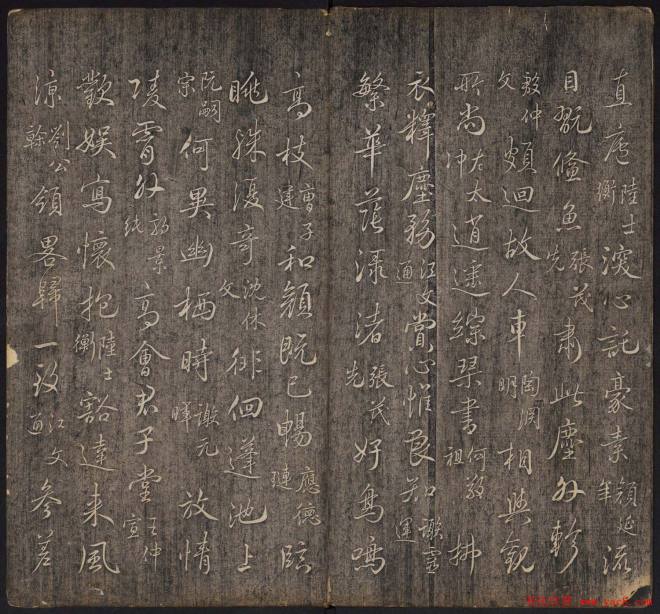 直廬陸士衡深心託豪素顏延年流
目翫儵魚張茂先肅此塵外軫
殷仲文頗迴故人車陶淵明相與觀
所尚左太沖逍遙綜琴書何敬祖拂
衣釋塵務江文通賞心惟良知謝靈運
繁華蔭淥渚張茂先好鳥鳴
高枝曹子建和顏既已暢應德璉臨
眺殊復奇沈休文徘徊蓬池上
阮嗣宗何異幽栖時謝元暉放情
凌霄外郭景純高會君子堂王仲宣
歡娛寫懷抱陸士衡豁達來風
涼劉公幹領略歸一致江文通參差